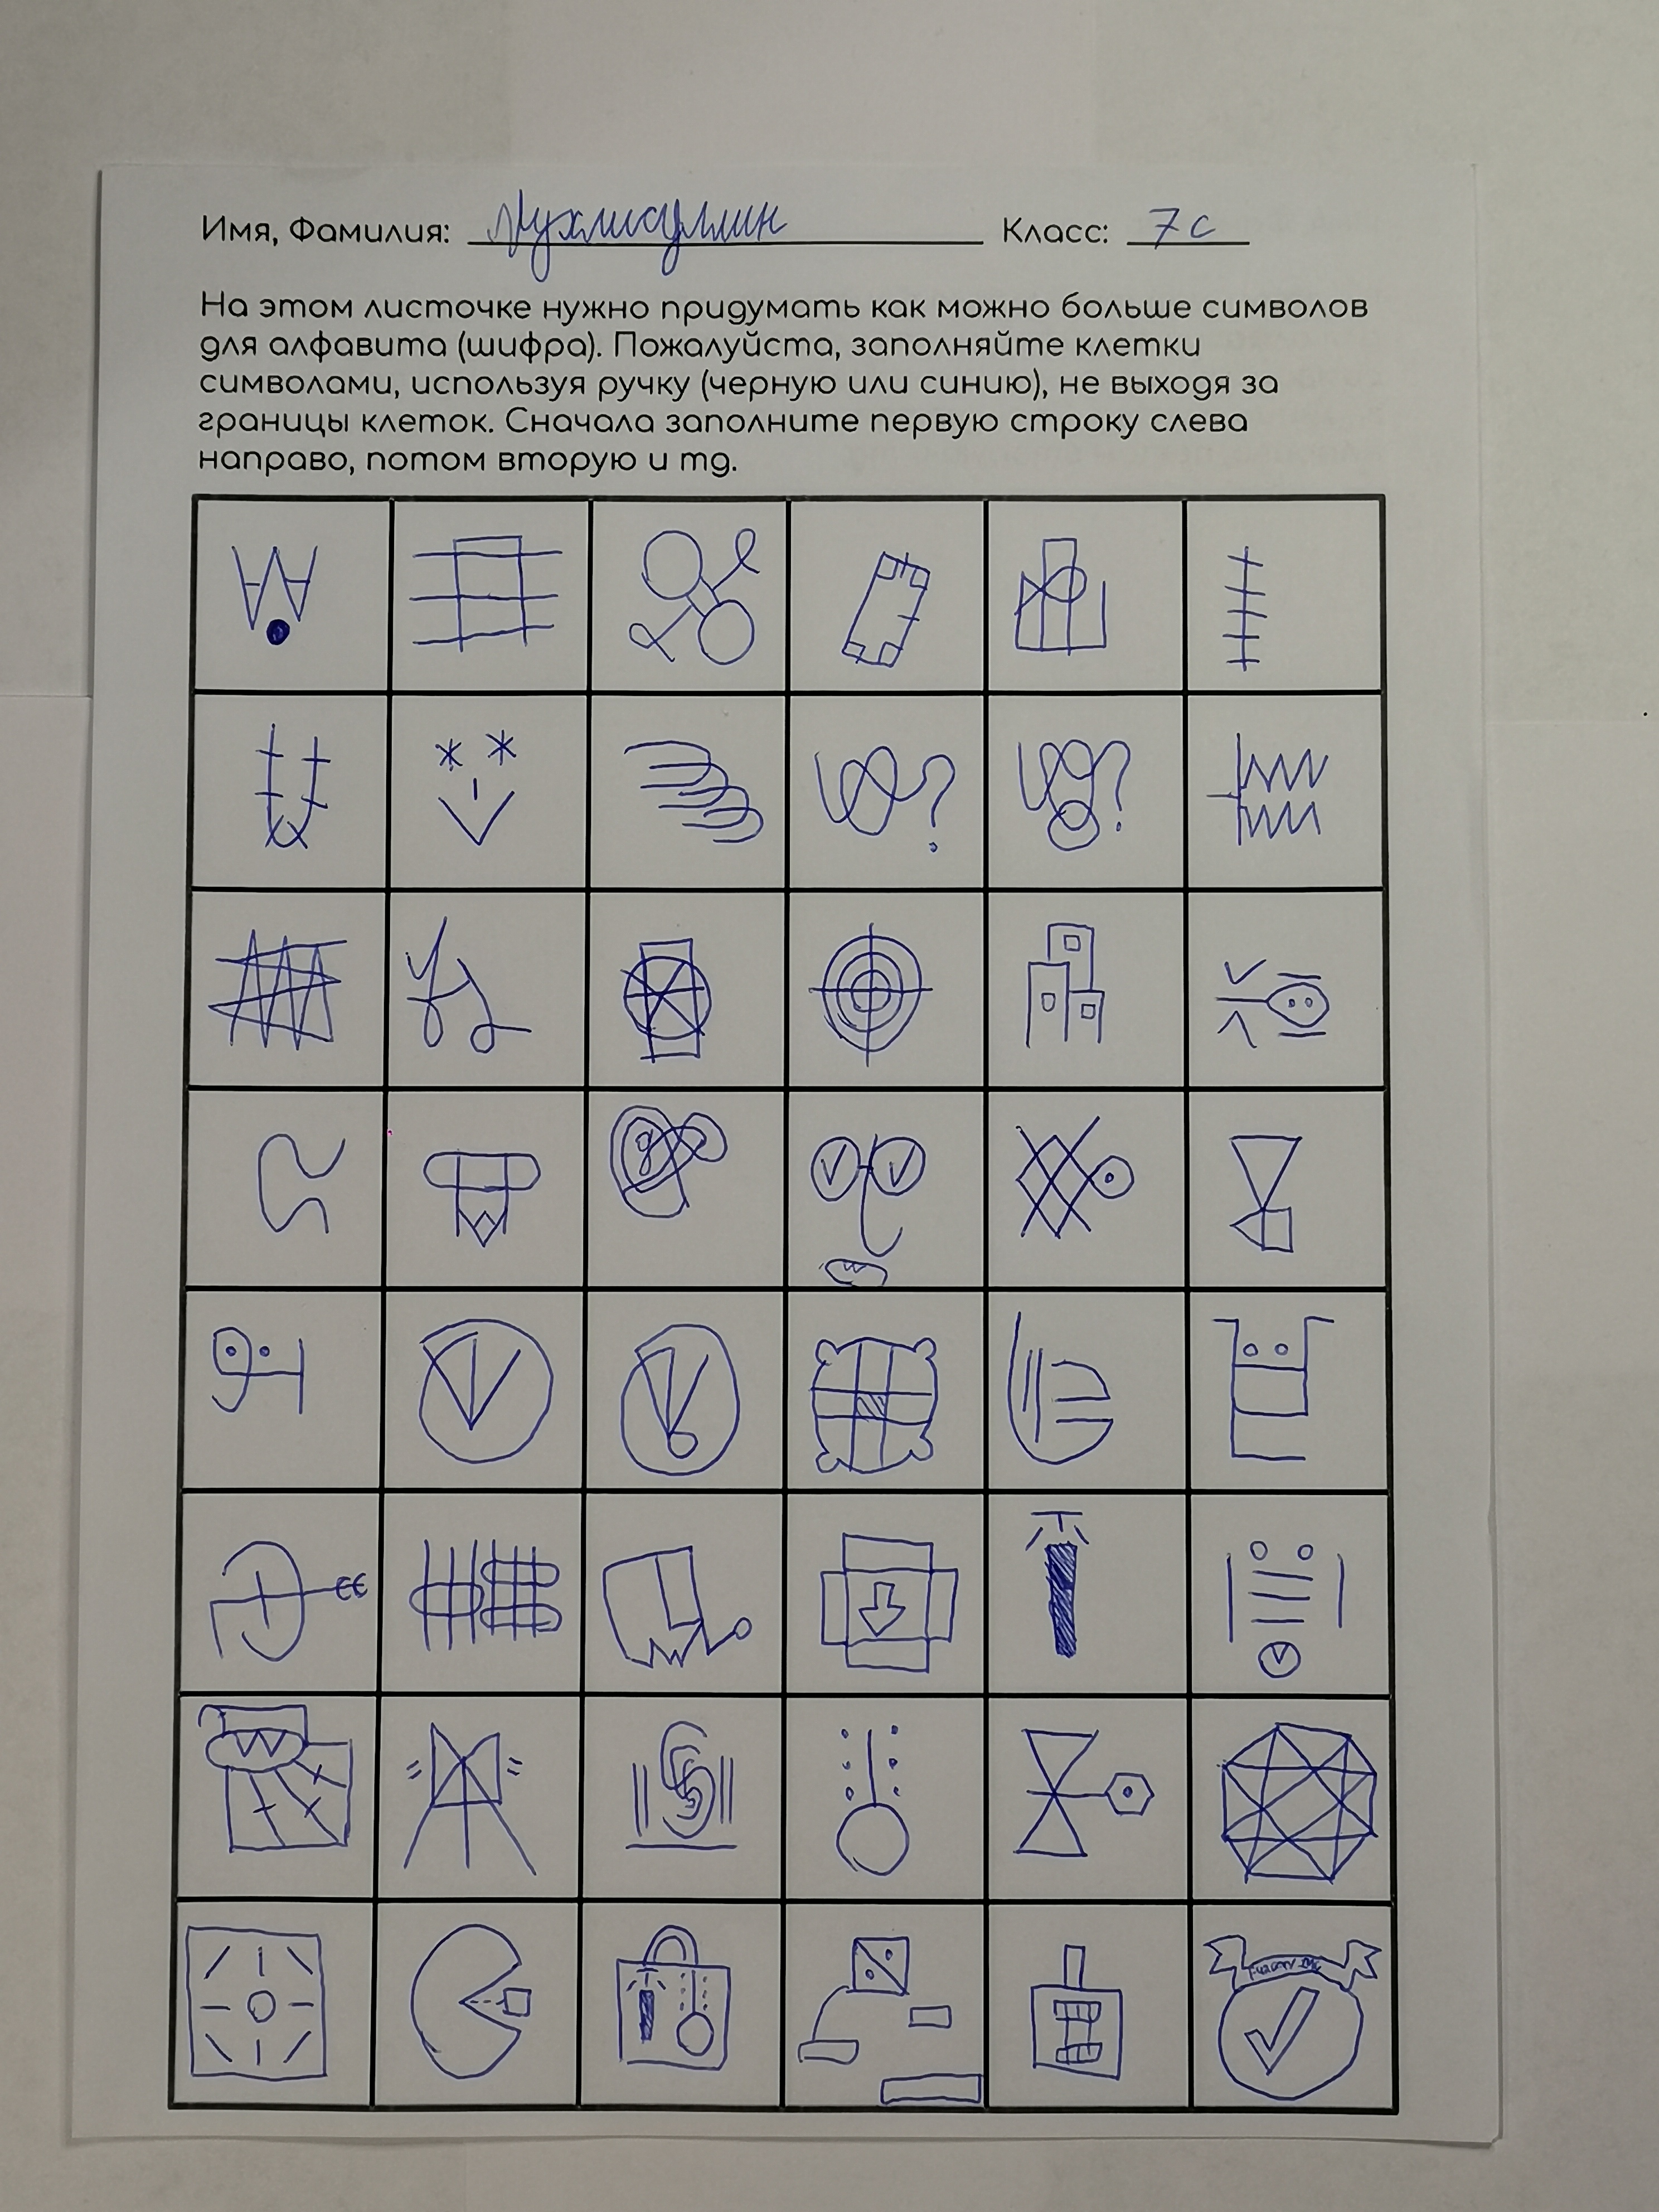 Имя, Фамилия: Класс: 7с
На этом листочке нужно придумать как можно больше символов
для алфавита (шифра). Пожалуйста, заполняйте клетки
символами, используя ручку (черную или синию), не выходя за
границы клеток. Сначала заполните первую строку слева
направо, потом вторую и тд.